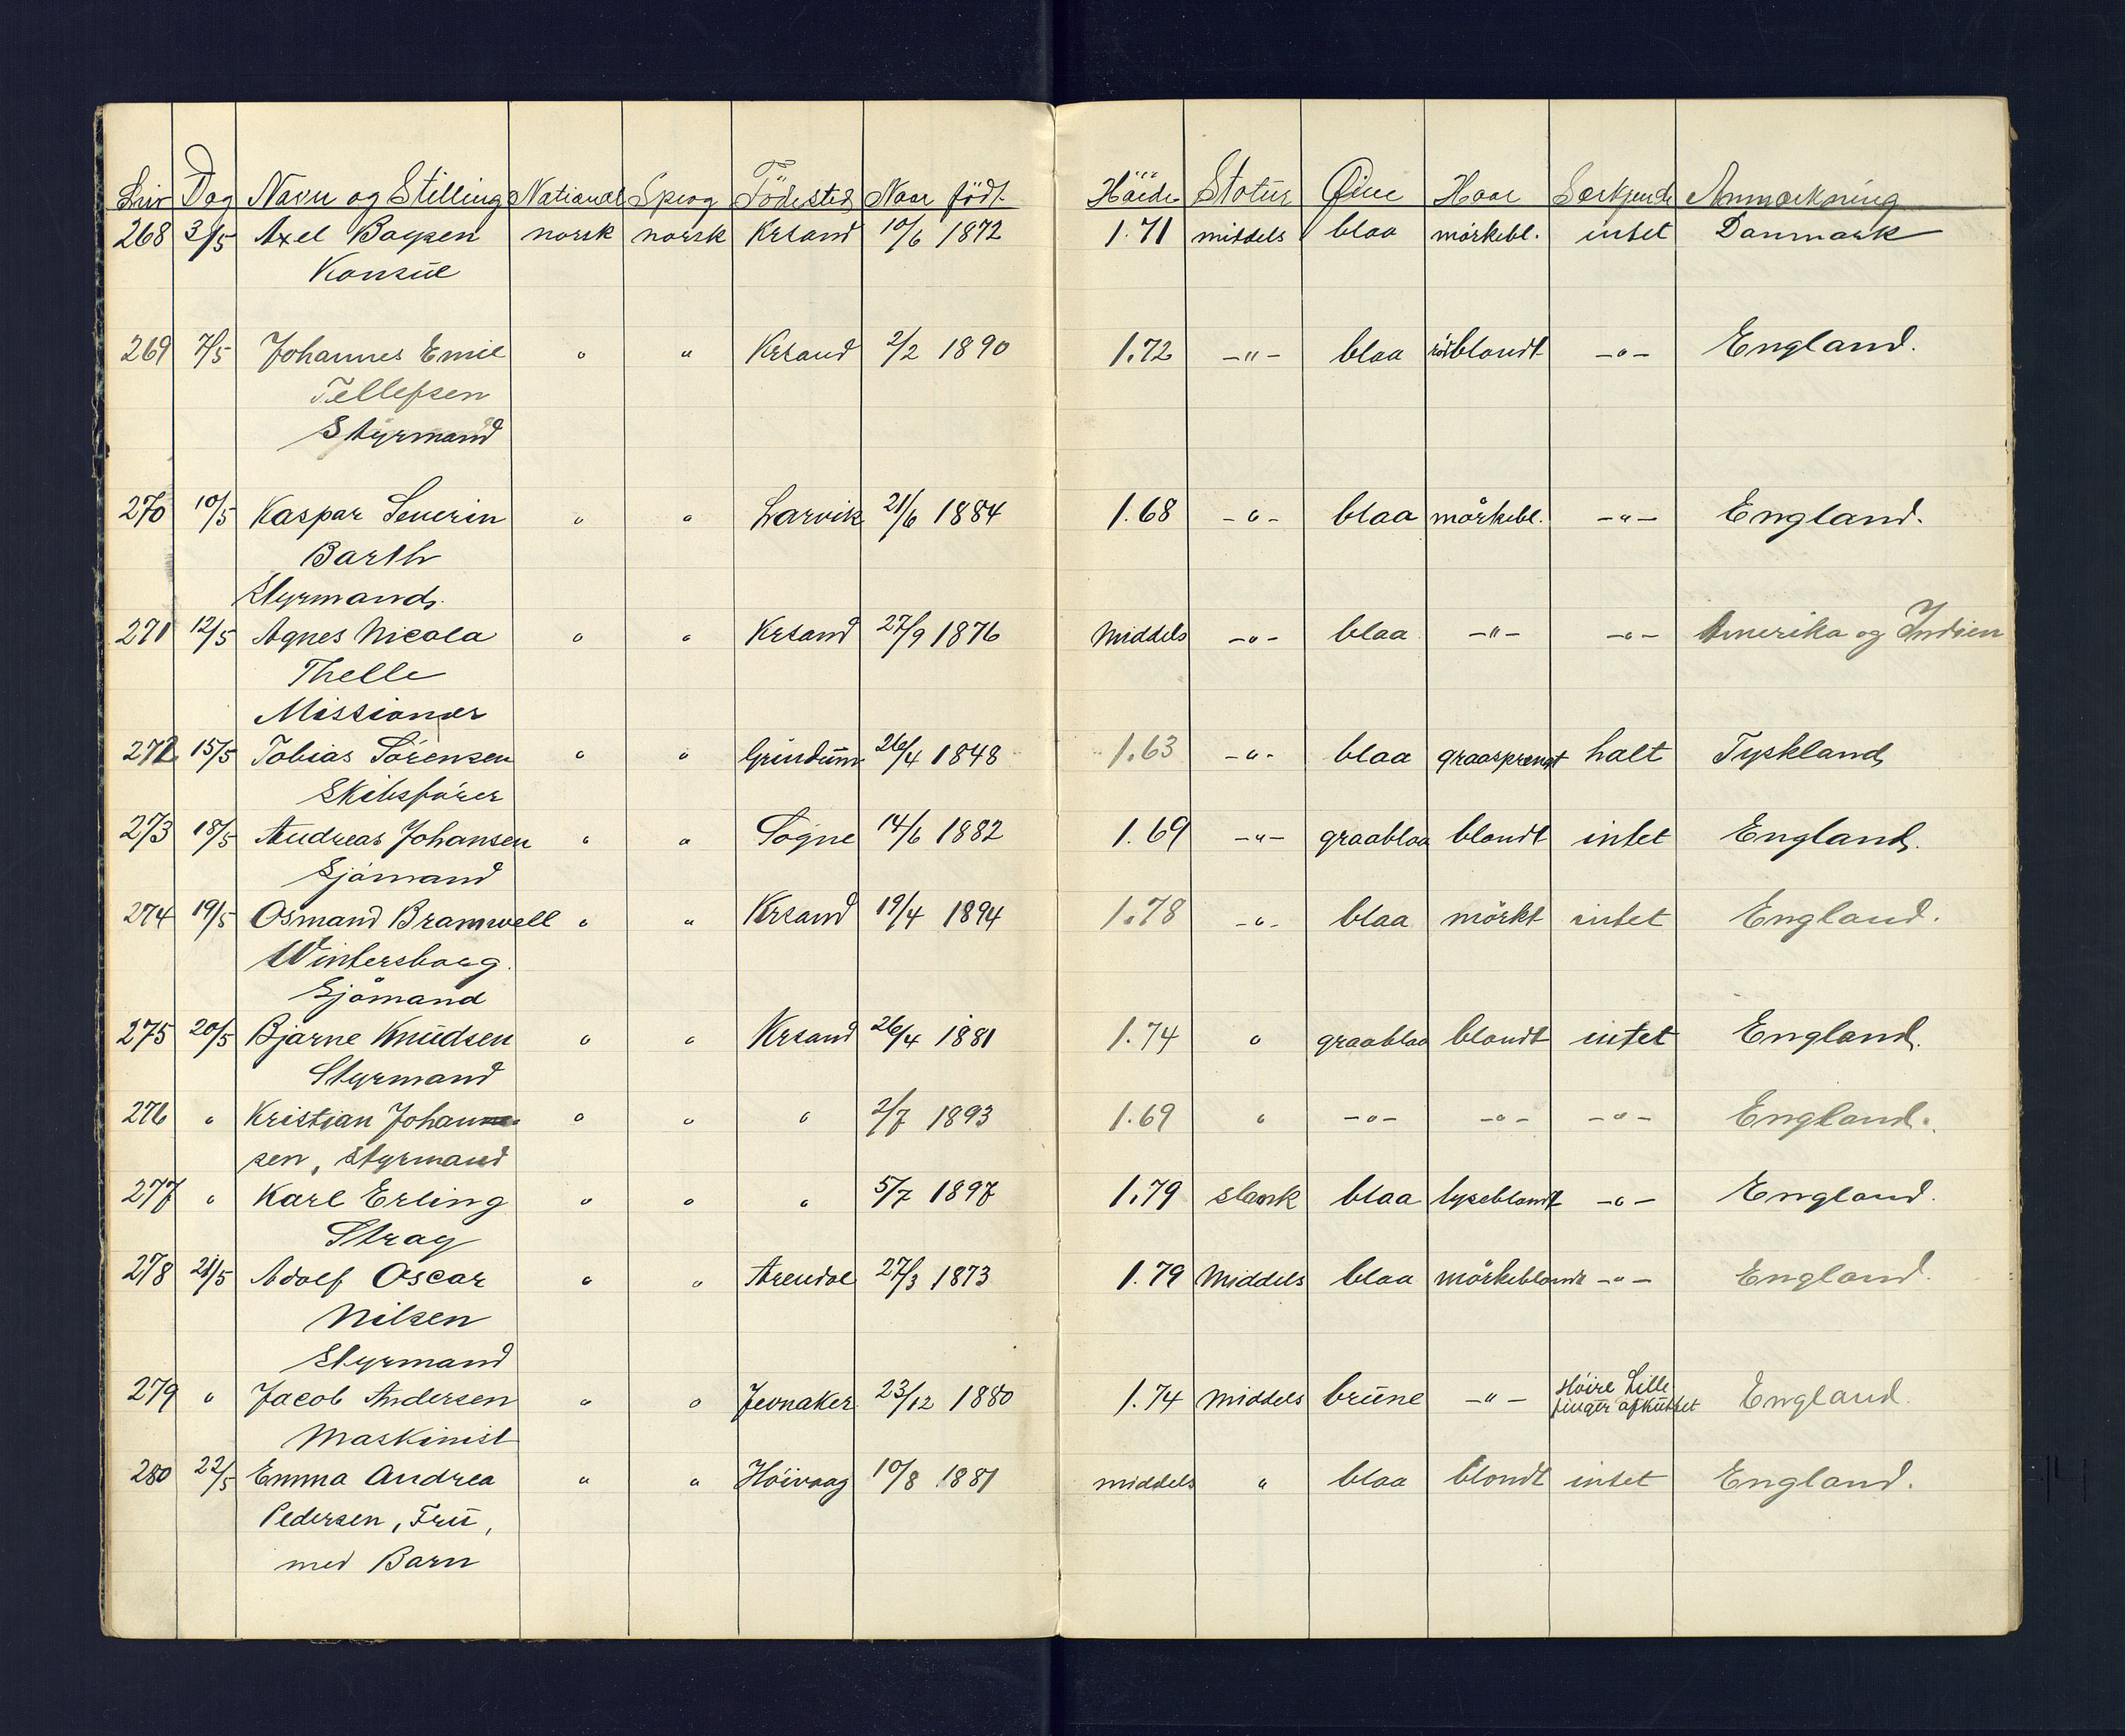 Dag Navn og Stilling National Sprog Födested Naar födt. Höide Statur Øine Haar Særkjende Anmærkning
268 3/5 Axel norsk norsk Krsand 10/6 1872 1.71 middels blaa mörkebl. intet Danmark
Konsul
269 7/5 Johannes Emil " " Krsand 2/2 1890 1.72 -"- blaa rödblondt -"- England.
Tellefsen
Styrmand
270 10/5 Kaspar Severin " " Larvik 21/6 1884 1.68 -"- blaa mörkebl. -"- England.
Barth
Styrmand
271 12/5 Agnes Nicola " " Krsand 27/9 1876 Middels -"- blaa -"- -"- Amerika og Indien
Thelle
Missionær
272 15/5 Tobias Sörensen " " Grindum 26/4 1848 1.63 -"- blaa graasprengt halt Tyskland
Skibsförer
273 18/5 Andreas Johansen " " Søgne 14/6 1882 1.69 -"- graablaa blondt intet England.
Sjömand
274 19/5 Osmand Bramwell " " Krsand 19/4 1894 1.78 -"- blaa mörkt intet England.
Wintersborg.
Sjömand
275 20/5 Bjarne Knudsen " " Krsand 26/4 1881 1.74 " graablaa blondt intet England.
Styrmand
276 " Kristian Johan " " " 2/7 1893 1.69 " -"- -"- -"- England.
sen, Styrmand
277 " Karl Erling " " " 5/7 1897 1.79 slank blaa lyseblondt -"- England.
Stray
278 21/5 Adolf Oscar " " Arendal 27/3 1873 1.79 Middels blaa mörkeblondt -"- England.
Nilsen
Styrmand
279 " Jacob Andersen " " Jevnaker 23/12 1880 1.74 Middels brune -"- Höire Lille England.
finger afkuttet
Maskinist
280 22/5 Emma Andrea " " Höivaag 10/8 1881 middels " blaa blondt intet England.
Pedersen, Fru,
med Barn